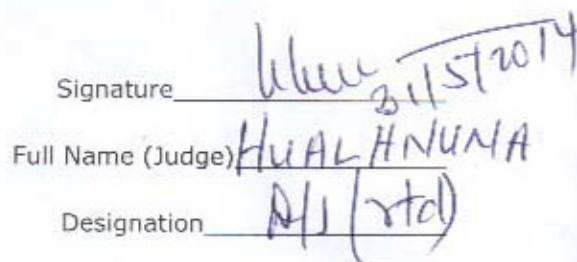 Signature 31/5/2014
Full Name (Judge) HUALHNUNA
Designation (rtd)